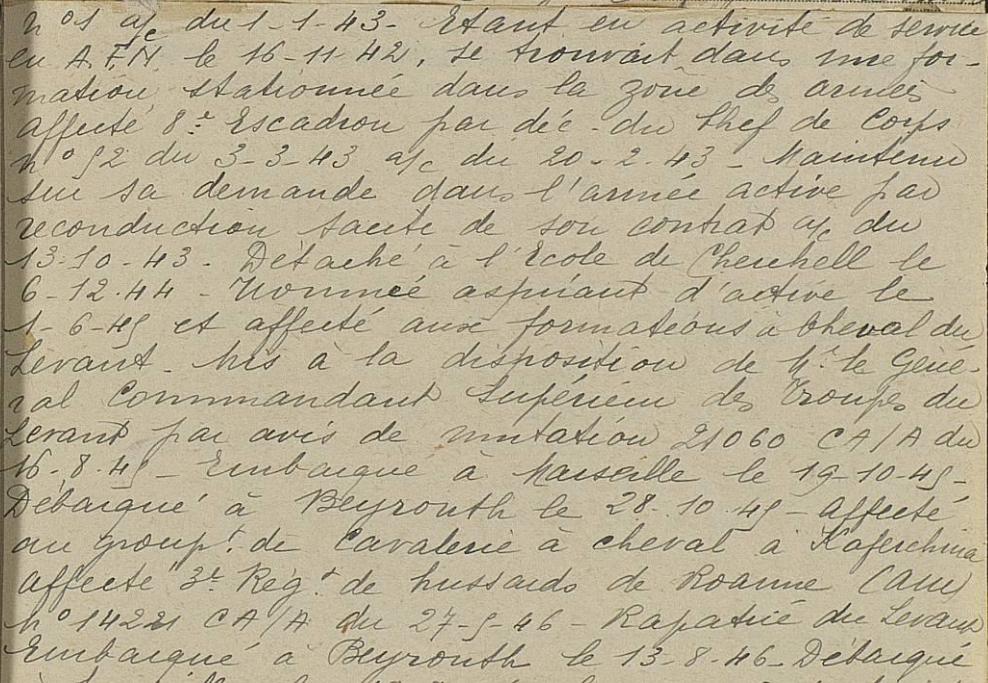 n° 1 a/c du 1-1-43 - Etant en activité de service
en A.F.N. le 16-11-42, se trouvait dans une for-
mation stationnée dans la zône des armées
affecté 8e Escadron par déc. du Chef de Corps
n° 52 du 3-3-43 a/c du 20-2-43 - Maintenu
sur sa demande dans l'armée active par
reconduction tacite de son contrat a/c du
13-10-43 - Détaché à l'Ecole de Cherchell le
6-12-44 - Nommé aspirant d'active le
1-6-45 et affecté aux formations à cheval du
Levant - Mis à la disposition de Mr. le Géné-
ral Commandant Supérieur des Troupes du
Levant par avis de mutation 21060 CA/A du
16-8-45 - Embarqué à Marseille le 19-10-45 -
Débarqué à Beyrouth le 28-10-45 - affecté
au groupt. de Cavalerie à cheval à Kaferchima
affecté 3e Régt de hussards de Roanne (
n° 14221 CA/A du 27-5-46 - Rapatrié du Levant
Embarqué à Beyrouth le 13-8-46 - Débarqué